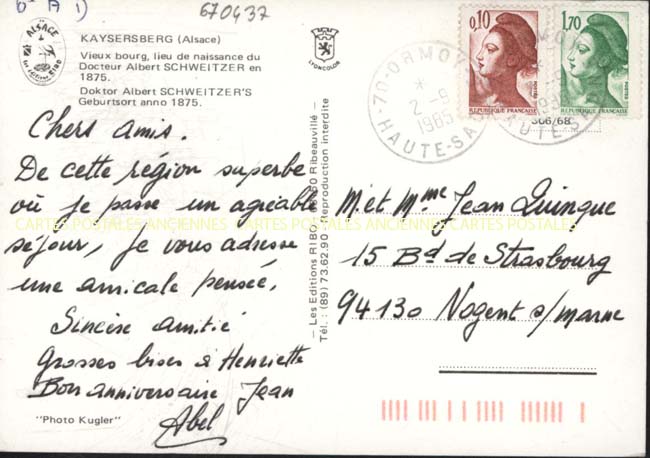 6- A 1)
670437
ALSACE
KAYSERSBERG (Alsace)
Vieux bourg, lieu de naissance du
Docteur Albert SCHWEITZER en
1875.
Doktor Albert SCHWEITZER'S
Geburtsort anno 1875.
LYONCOLOR
Chers amis.
De cette région superbe
où je passe un agréable
séjour, je vous adresse
une amicale pensée,
Sincère amitié
Grosses bises à Henriette
Bon anniversaire Jean
Abel
"Photo Kugler"
— Les Editions RIBO Ribeauvillé —
Tél. : (89) 73.62.90 Reproduction interdite
0,10
REPUBLIQUE FRANÇAISE
1,70
REPUBLIQUE FRANÇAISE
70-ORMOY
* 2-9
1985
HAUTE-SA
306/68
M. et Mme Jean Quinque
15 Bd de Strasbourg
94130 Nogent s/marne
CARTES POSTALES ANCIENNES CARTES POSTALES ANCIENNES CARTES POSTALES